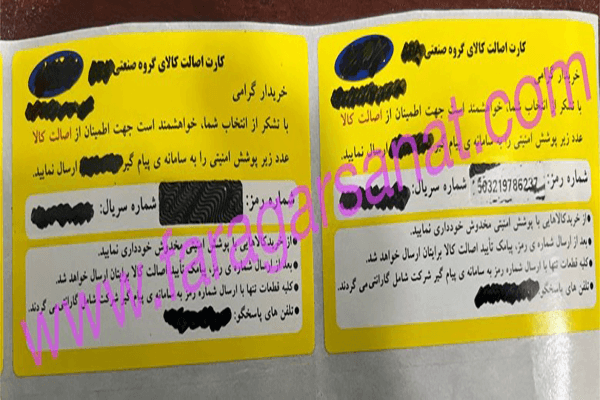 کارت اصالت کالای گروه صنعتی
خریدار گرامی
با تشکر از انتخاب شما، خواهشمند است جهت اطمینان از اصالت کالا
عدد زیر پوشش امنیتی را به سامانه ی پیام گیر ارسال نمایید.
شماره رمز: شماره سریال:
از خرید کالاهایی با پوشش امنیتی مخدوش خودداری نمایید.
بعد از ارسال شماره ی رمز، پیامک تأیید اصالت کالا برایتان ارسال خواهد شد.
کلیه قطعات تنها با ارسال شماره رمز به سامانه ی پیام گیر شرکت شامل گارانتی می گردند.
تلفن های پاسخگو:
کارت اصالت کالای گروه صنعتی
خریدار گرامی
با تشکر از انتخاب شما، خواهشمند است جهت اطمینان از اصالت کالا
عدد زیر پوشش امنیتی را به سامانه ی پیام گیر ارسال نمایید.
شماره رمز: 503219786237 شماره سریال:
از خرید کالاهایی با پوشش امنیتی مخدوش خودداری نمایید.
بعد از ارسال شماره ی رمز، پیامک تأیید اصالت کالا برایتان ارسال خواهد شد.
کلیه قطعات تنها با ارسال شماره رمز به سامانه ی پیام گیر شرکت شامل گارانتی می گردند.
تلفن های پاسخگو:
www.faragarsanat.com